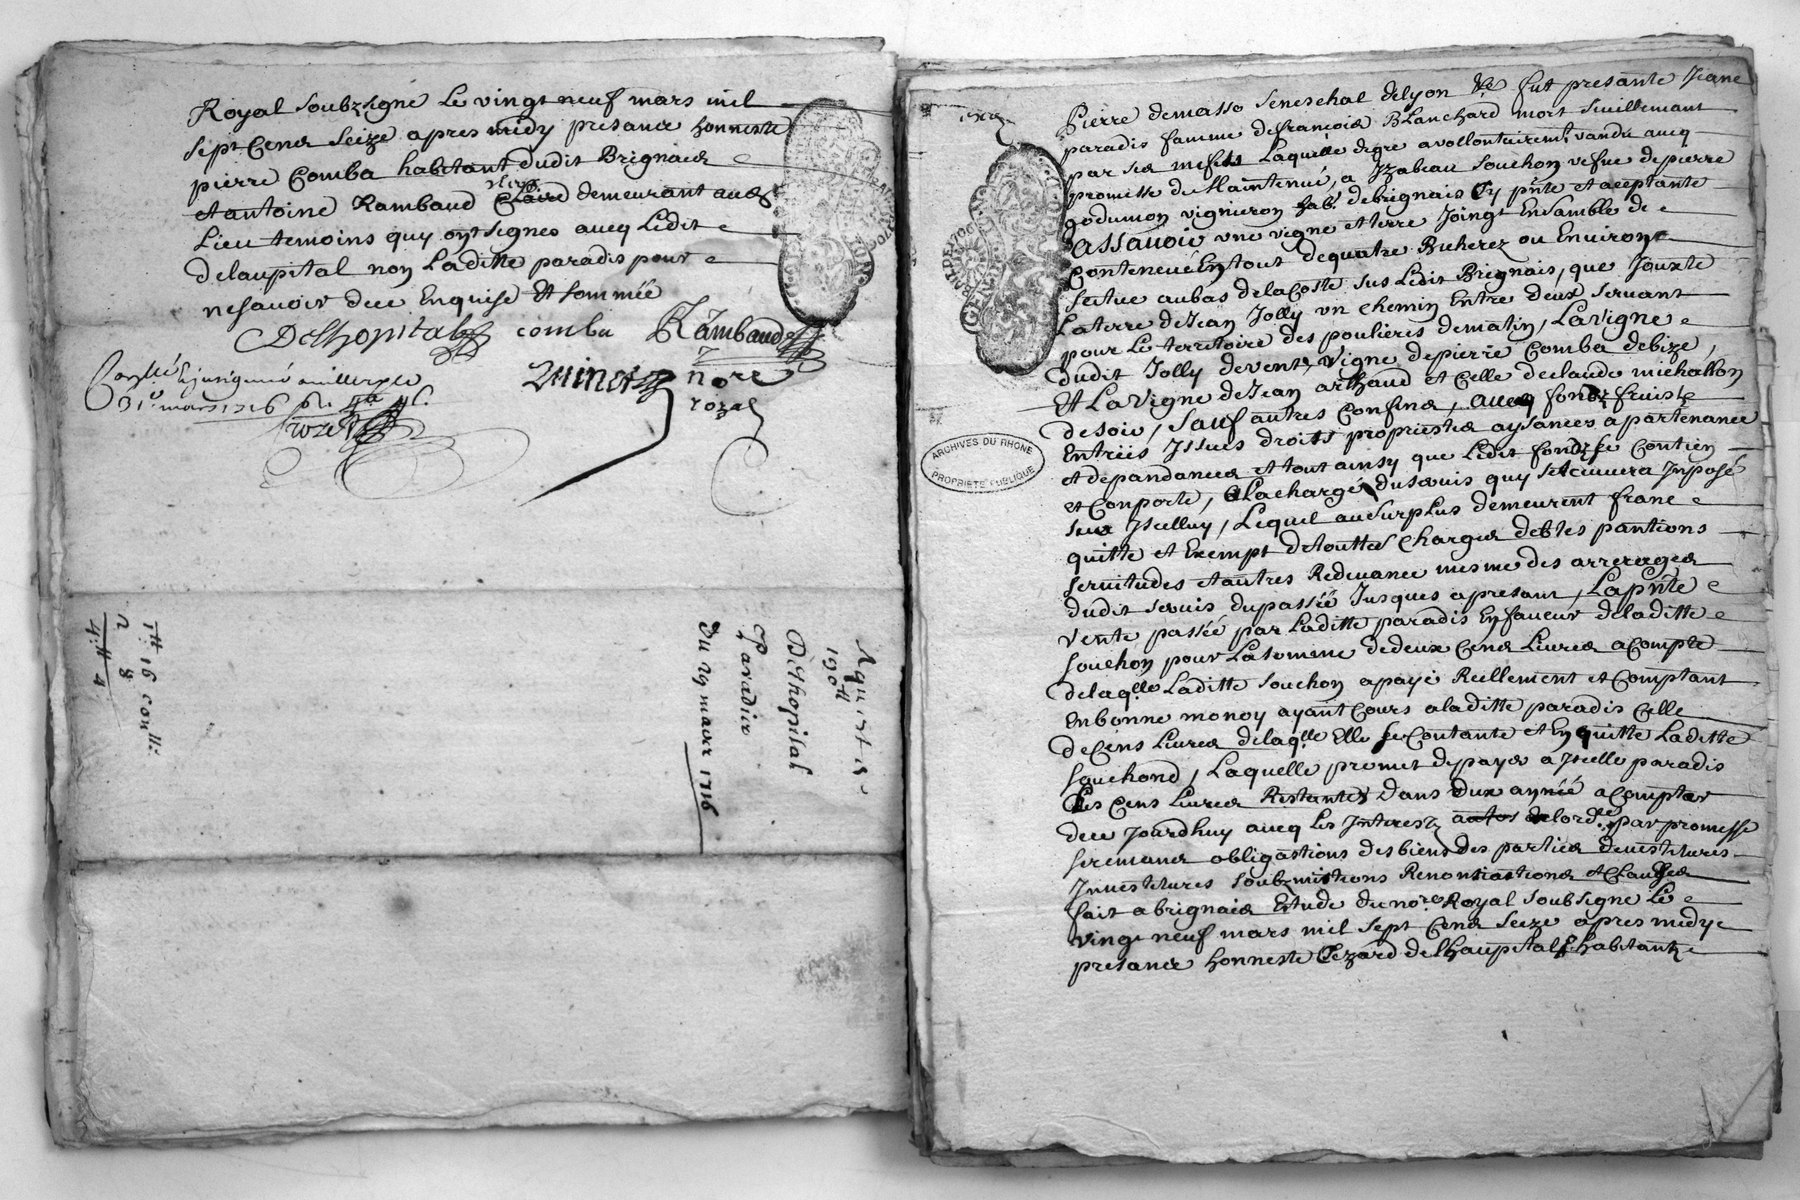 Royal soubzsigne Le vingt neuf mars mil
sept Cens seize apres midy presance honneste
pierre Comba habitant dudit Brignais
et antoine Rambaud Clerc demeurant aud
Lieu temoins quy ont signes avecq Ledit
delaupital non Laditte paradis pour
ne savoir dece Enquise Et sommée
Delhopital comba Rambaud
Quinet nore
royal
31e mars 1716
Aquist de
190tt
Delhopital
Paradis
Du 29 mars 1716
Pierre demasso seneschal delyon &c fut presante Jeane
paradis famme defrancois Blanchard mort sivillemant
par ses mefets Laquelle degre a vollontairemt vandu avecq
promesse de Maintenue, a Izabeau souchon vefve depierre
godumon vigneron habt debrignais Cy pnte et aceptante
Assavoir une vigne et terre Joingt Ensamble de
Contenevé En tout dequatre Bicherez ou Environ
scitue aubas delacoste sus Ledit Brignais, que Jouxte
La terre deJean Jolly un chemin Entre deux servant
pour Le territoire des poulieres dematin, La vigne
dudit Jolly devent, vigne depierre Comba debize,
Et La vigne deJean arthaud et Celle declaude michallon
desoir, sauf autres Confins, avecq fondz fruist
Entrées Issues droits proprietes aysances apartenance
et depandances et tout ainsy que Ledit fondz se Contien
et Conporte, a La charge du servis quy setrouvera Imposé
sur Iselluy, Lequel au surplus demeurent franc
quitte et Exempt detouttes charges debtes pantions
servitudes et autres Redevance mesme des arrerages
dudit servis dupassée Jusques apresant, La pnte
vente passée par Laditte paradis En faveur deladitte
souchon pour La somme dedeux Cens Livres a Compte
delaqlle Laditte souchon a payé Reellement et Comptant
En bonne monoy ayant Cours aladitte paradis Celle
deCens Livres delaqlle Elle se Contante et En quitte Laditte
souchond, Laquelle promet depayer a Iselle paradis
Les Cens Livres Restantes dans dux année a Compter
dece Jourdhuy avecq Les Interestz delordce par promesse
sermans obligastions desbiens des parties devestitures
Investitures soubzmistions Renontiastions et Clauses
fait a brignais Estude dunore Royal soubsigne Le
vingt neuf mars mil sept Cens seize apres midy
presance honneste Cezard delhaupital habitant
ARCHIVES DU RHONE
PROPRIETE PUBLIQUE